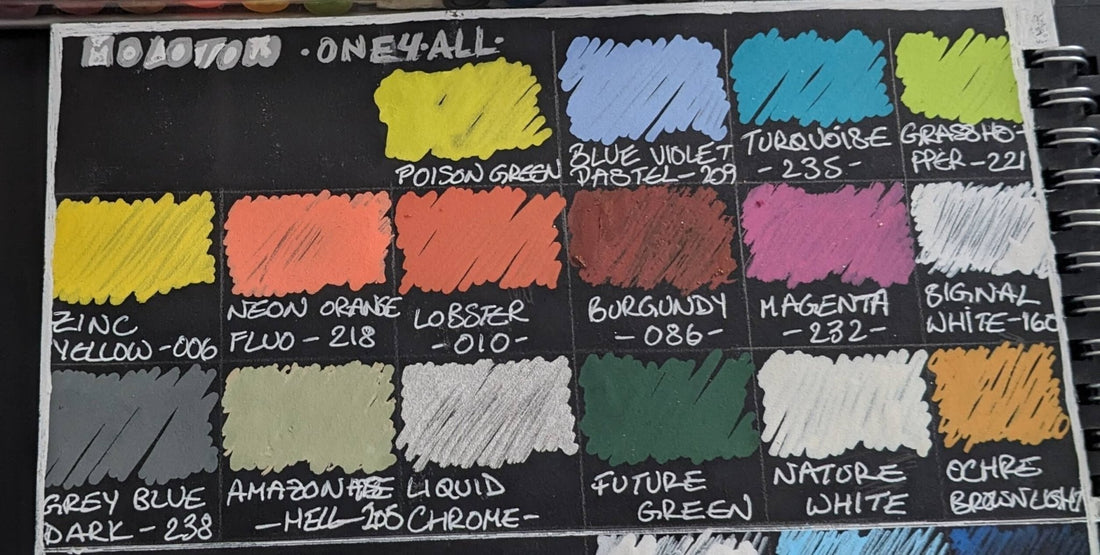 MOLOTOW · ONE4·ALL·
POISON GREEN
BLUE VIOLET
PASTEL-209
TURQUOISE
-235-
GRASSHO-
PPER-221
ZINC
YELLOW-006
NEON ORANGE
FLUO-218
LOBSTER
-010-
BURGUNDY
-086-
MAGENTA
-232-
SIGNAL
WHITE-160
GREY BLUE
DARK-238
AMAZONAS
-HELL-205
LIQUID
CHROME-
FUTURE
GREEN
NATURE
WHITE
OCHRE
BROWN LIGHT